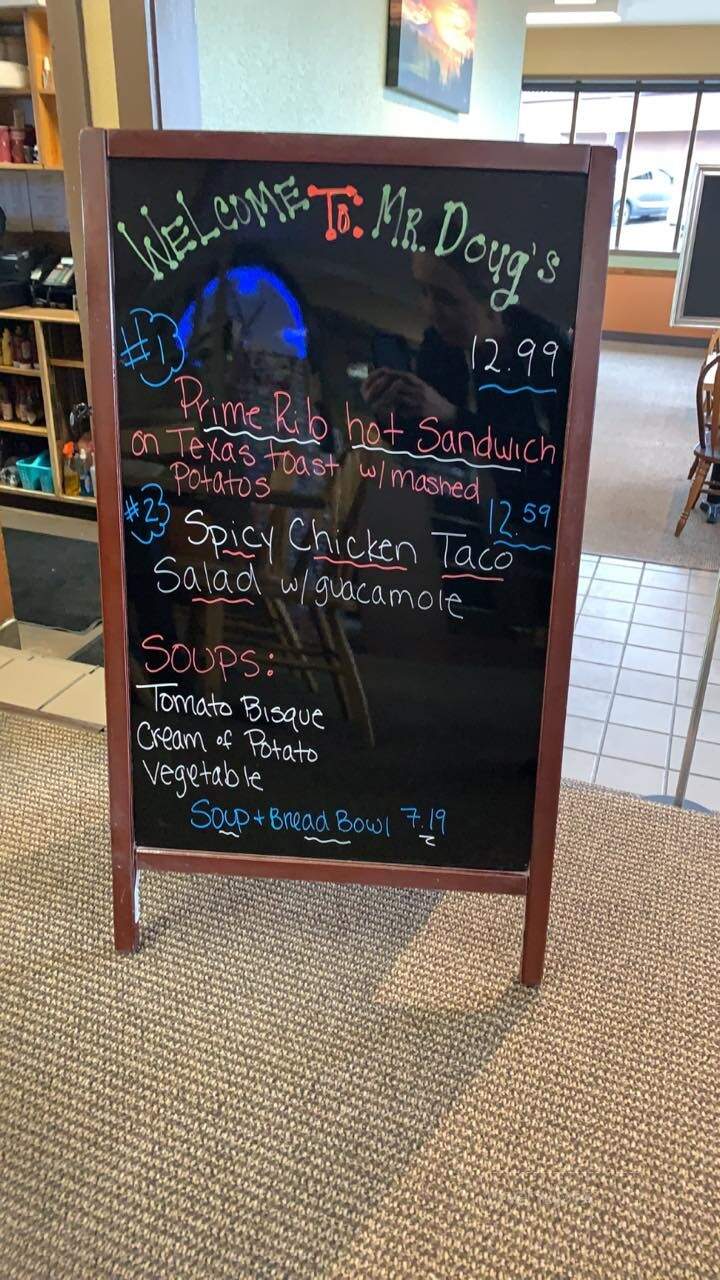 WELCOME TO: MR. Doug's
#1
12.99
Prime Rib hot Sandwich
on Texas toast w/mashed
Potatos
#2
12.59
Spicy Chicken Taco
Salad w/guacamole
SOUPS:
Tomato Bisque
Cream of Potato
Vegetable
Soup + Bread Bowl 7.19